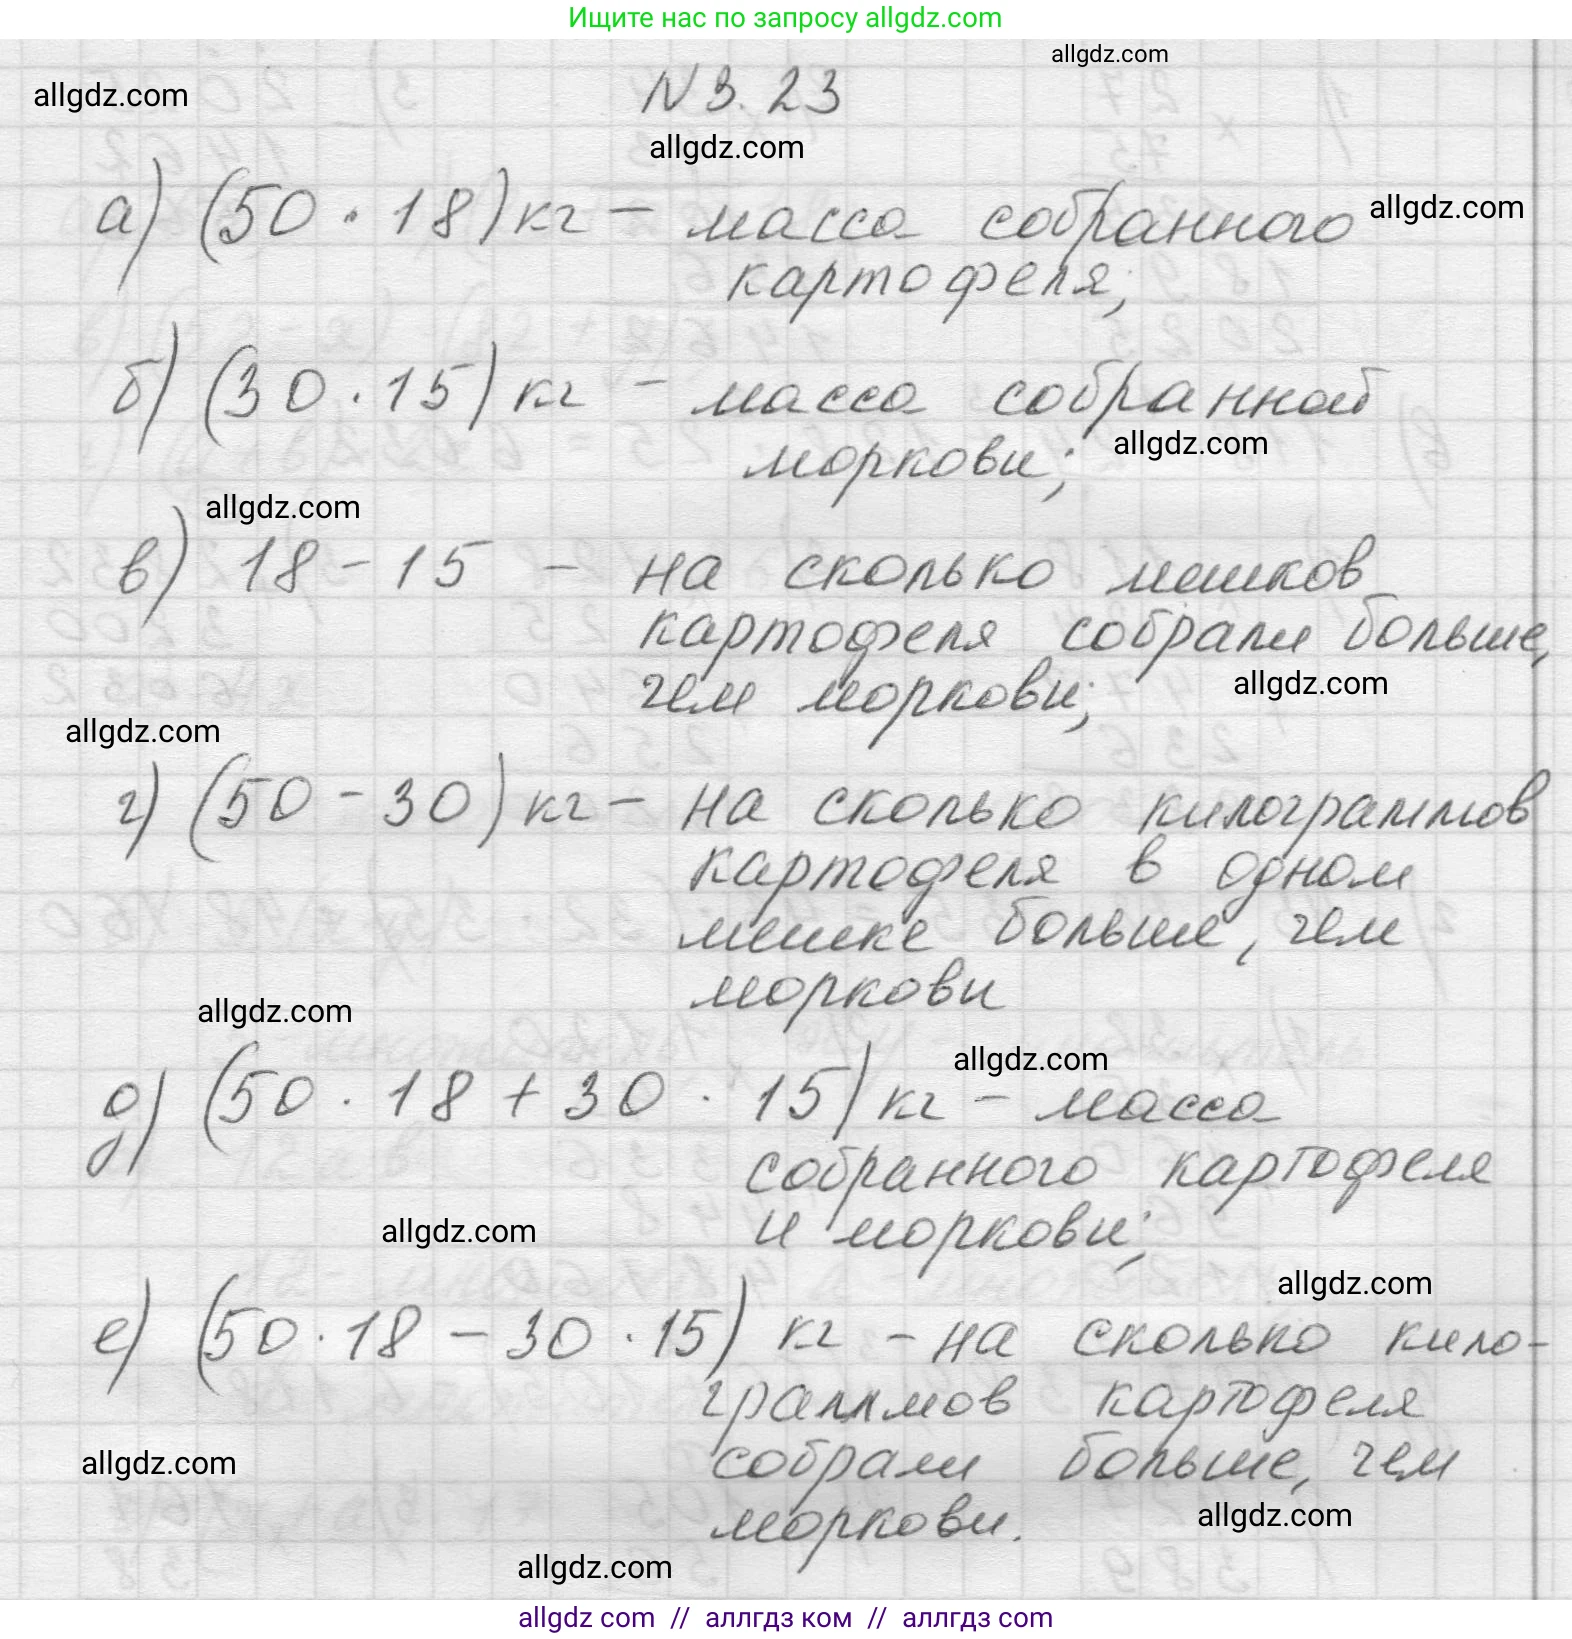 Ищите нас по запросу allgdz.com
allgdz.com
allgdz.com
N 3.23
allgdz.com
а) (50 · 18) кг – масса собранного
allgdz.com
картофеля;
б) (30 · 15) кг – масса собранной
allgdz.com
моркови;
allgdz.com
в) 18 – 15 – на сколько мешков
картофеля собрали больше,
allgdz.com
чем моркови;
allgdz.com
г) (50 – 30) кг – на сколько килограммов
картофеля в одном
мешке больше, чем
моркови
allgdz.com
allgdz.com
д) (50 · 18 + 30 · 15) кг – масса
собранного картофеля
и моркови;
allgdz.com
allgdz.com
е) (50 · 18 – 30 · 15) кг – на сколько кило-
граммов картофеля
собрали больше, чем
allgdz.com
моркови.
allgdz.com
allgdz.com
allgdz com // аллгдз ком // аллгдз com